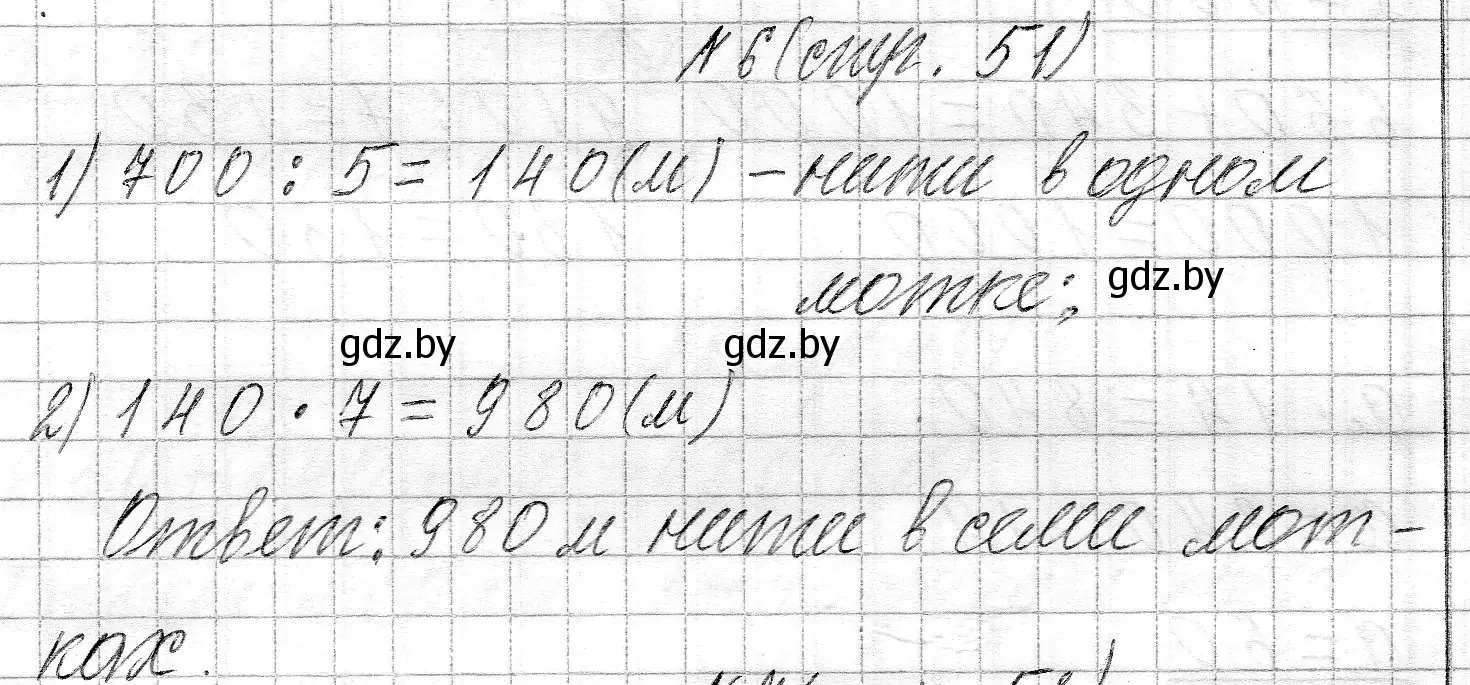 № 6 (стр. 51)
1) 700 : 5 = 140 (м) – нити в одном
мотке;
gdz.by
gdz.by gdz.by
2) 140 · 7 = 980 (м)
Ответ: 980 м нити в семи мот-
ках.